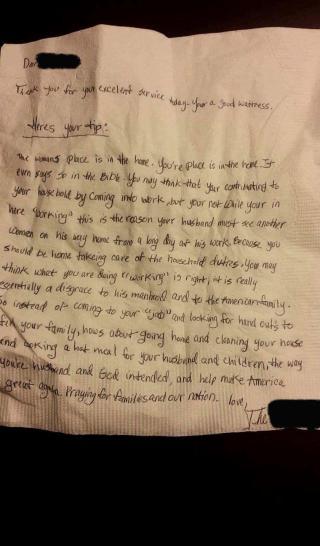 Dear
Thank you for your excelent service today. Your a good waitress.
Heres your tip:
The womans place is in the home. You're place is in the home. It
even says so in the Bible. You may think that your contributing to
your household by coming into work, but your not. While your in
here "working" this is the reason your husband must see another
women on his way home from a long day at his work. Because you
should be home takeing care of the household duties. You may
think what you are doing "working" is right, it is really
essentially a disgrace to his manhood and to the American family.
So instead of coming to your "job" and looking for hand outs to
feed your family, hows about going home and cleaning your house
and cooking a hot meal for your husband and children, the way
you're husband and God intended, and help make America
great again. Praying for families and our nation. love,
The